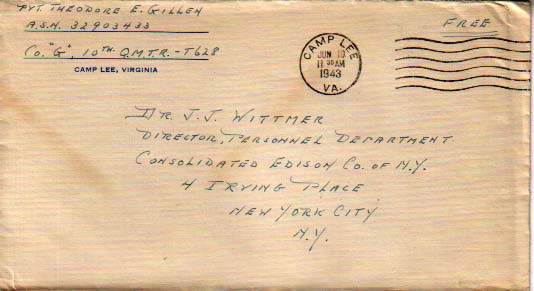 PVT. THEODORE E. GILLEN
A.S.N. 32903433
Co. "G", 10TH Q.M.T.R. - T628
CAMP LEE, VIRGINIA
FREE
CAMP LEE
JUN 10
11 30 AM
1943
VA.
DR. J. J. WITTMER
DIRECTOR, PERSONNEL DEPARTMENT
CONSOLIDATED EDISON CO. OF N.Y.
4 IRVING PLACE
NEW YORK CITY
N.Y.